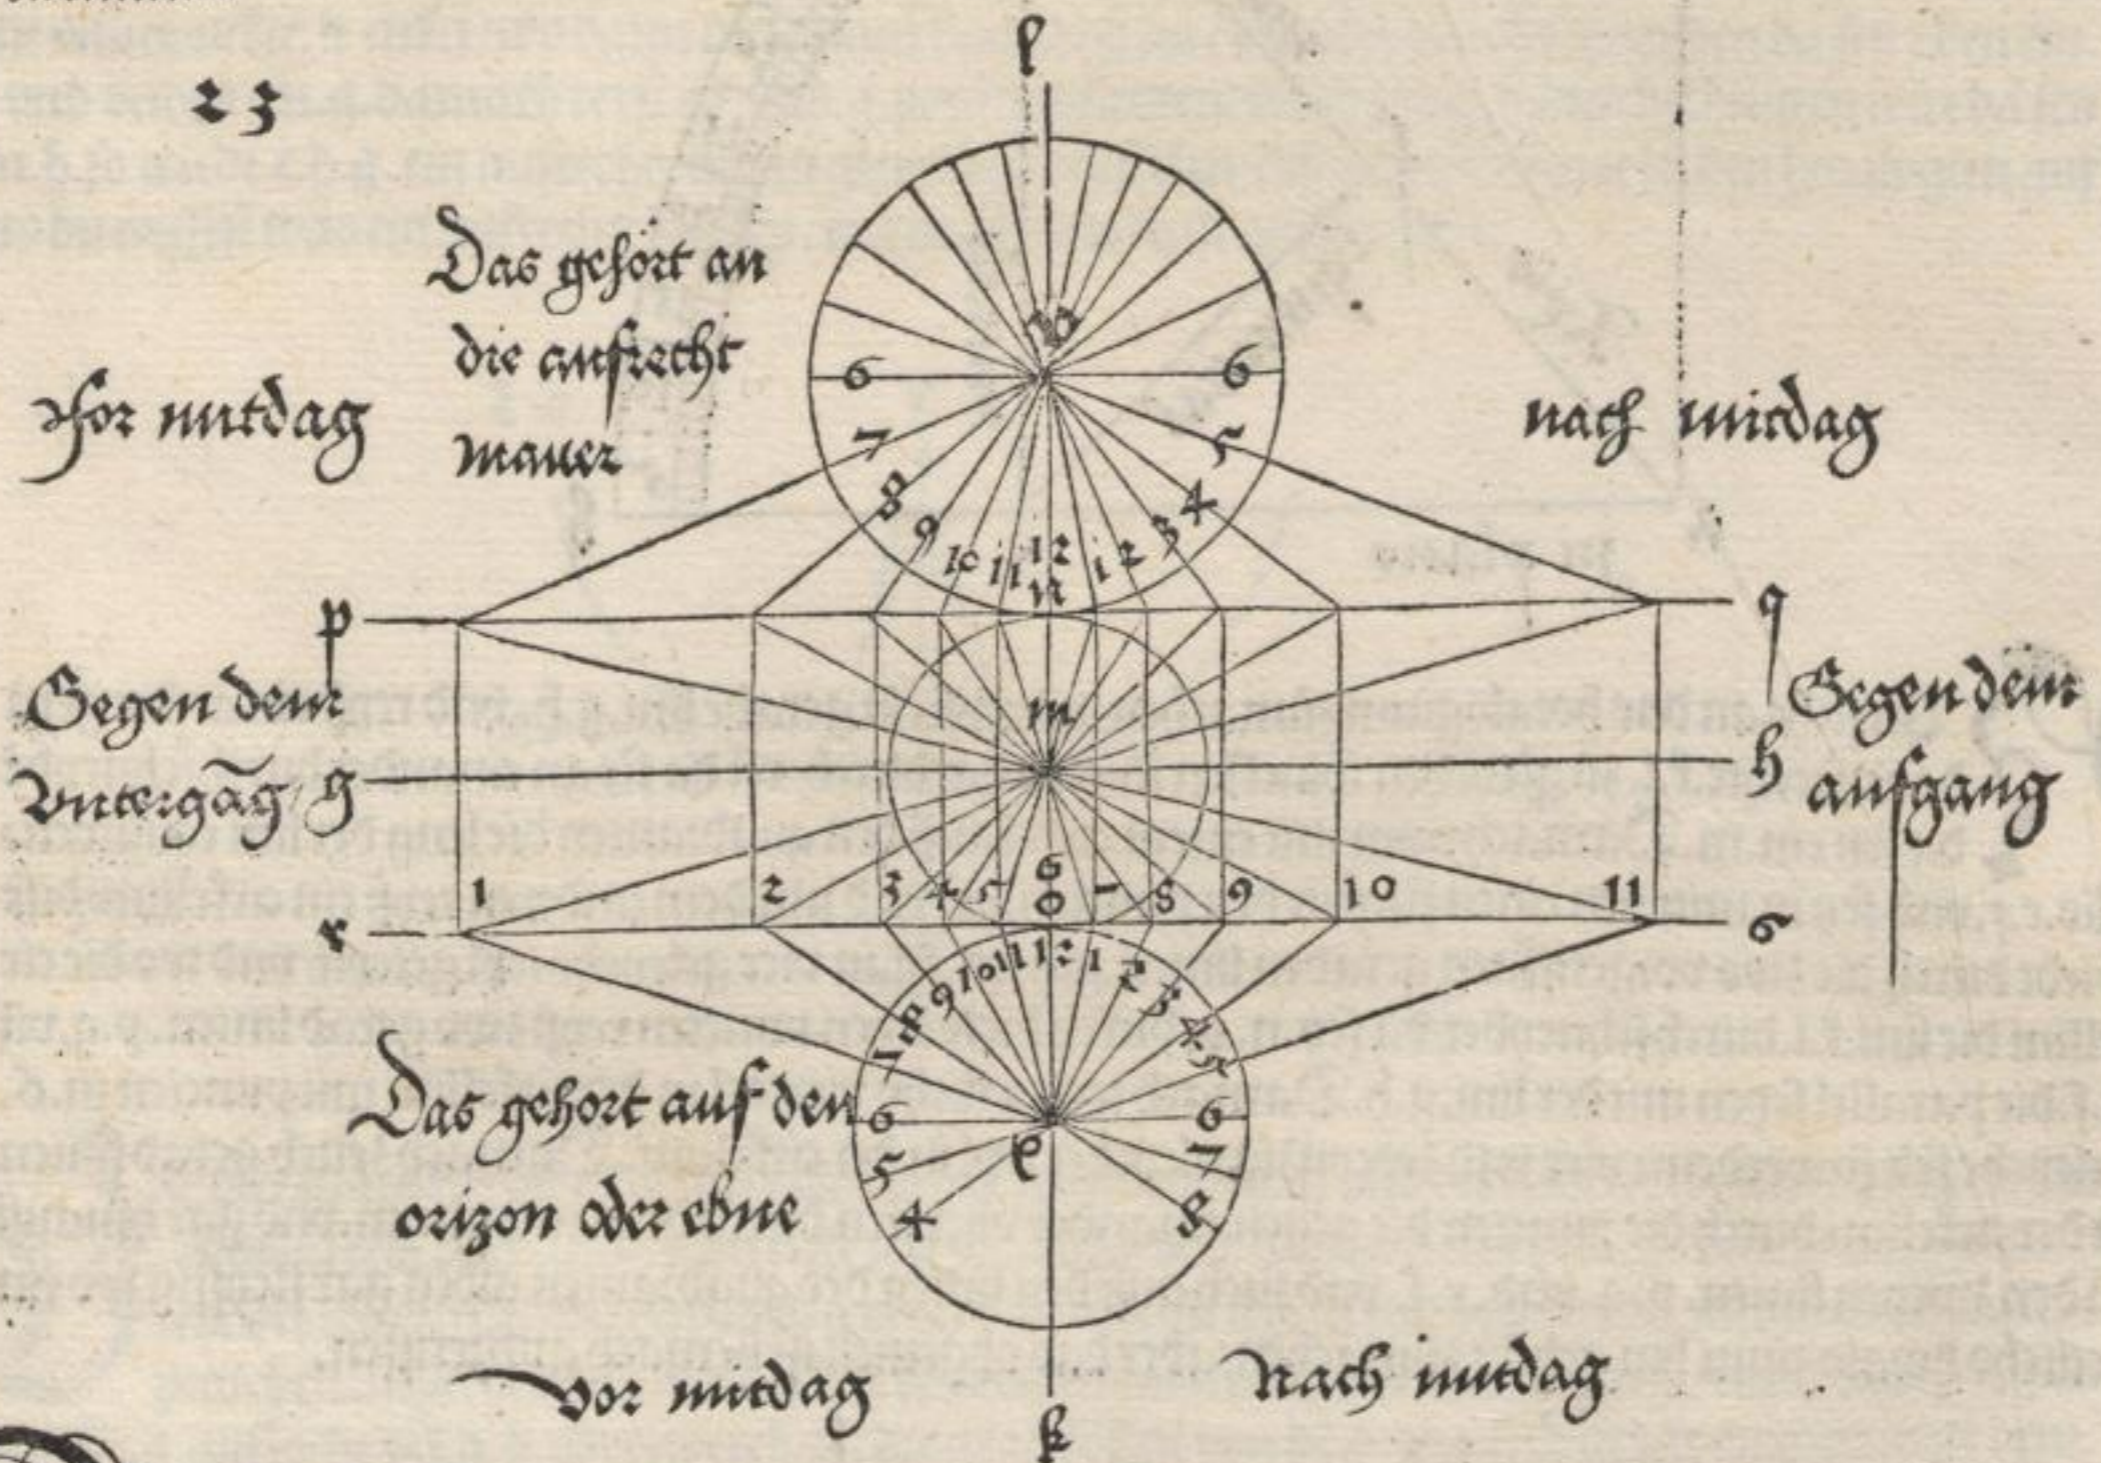 l
23
Das gehört an
die aufrecht
mauer
Vor mitdag
nach mitdag
6 6
7 5
8 4
9 3
10 11 12 1 2
n
p q
Gegen dem
Untergāg
Gegen dem
aufgang
m
g h
6
1 2 3 4 5 o 7 8 9 10 11
r s
7 8 9 10 11 12 1 2 3 4 5
Das gehort auf den
orizon oder ebne
6 6
e
5 7
4 8
vor mitdag
Nach mitdag
k